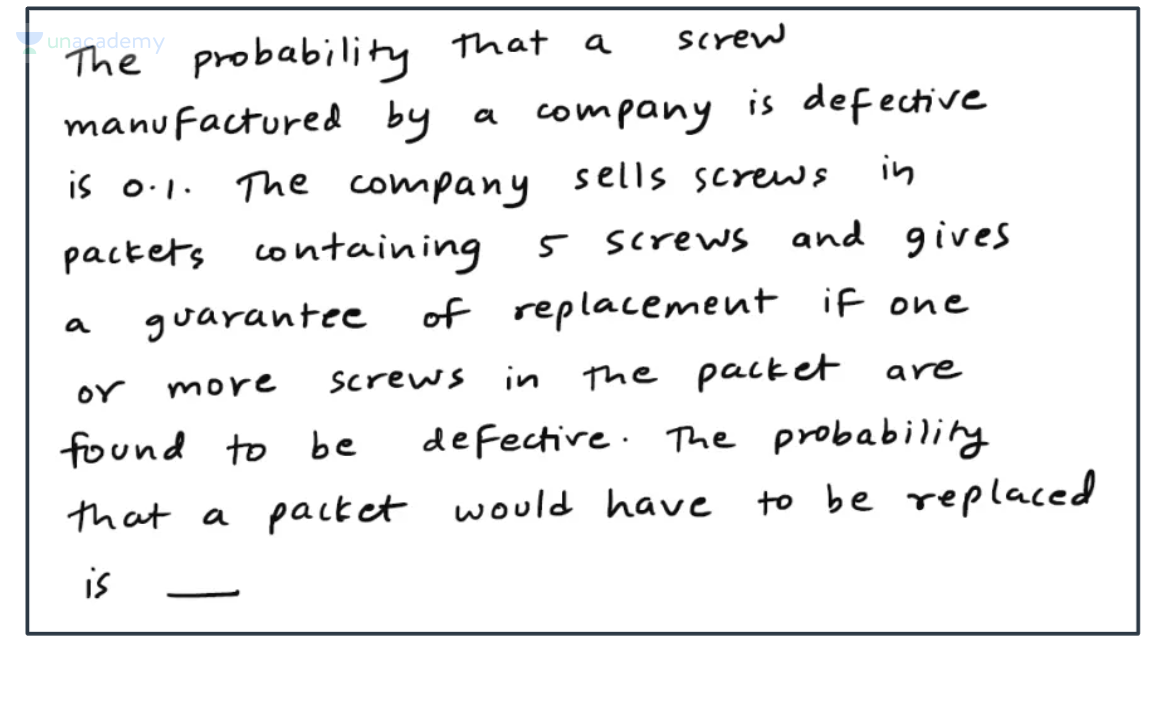 unacademy
The probability that a screw
manufactured by a company is defective
is 0.1. The company sells screws in
packets containing 5 screws and gives
a guarantee of replacement if one
or more screws in the packet are
found to be defective. The probability
that a packet would have to be replaced
is __